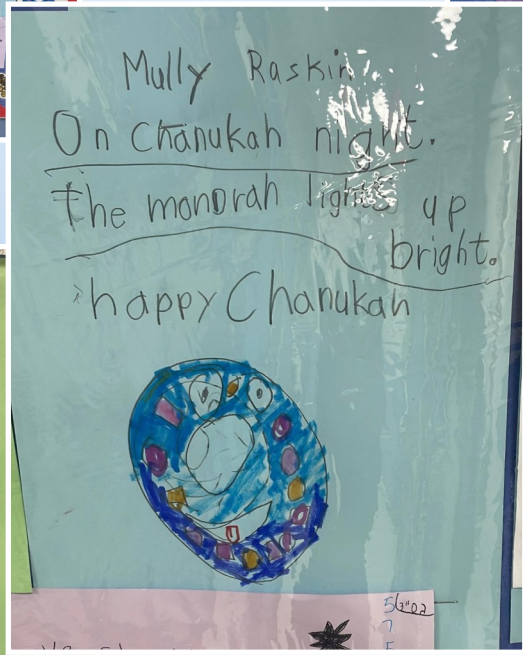 Mully Raskin
On Chanukah night.
The monorah lights up
bright.
happy Chanukah